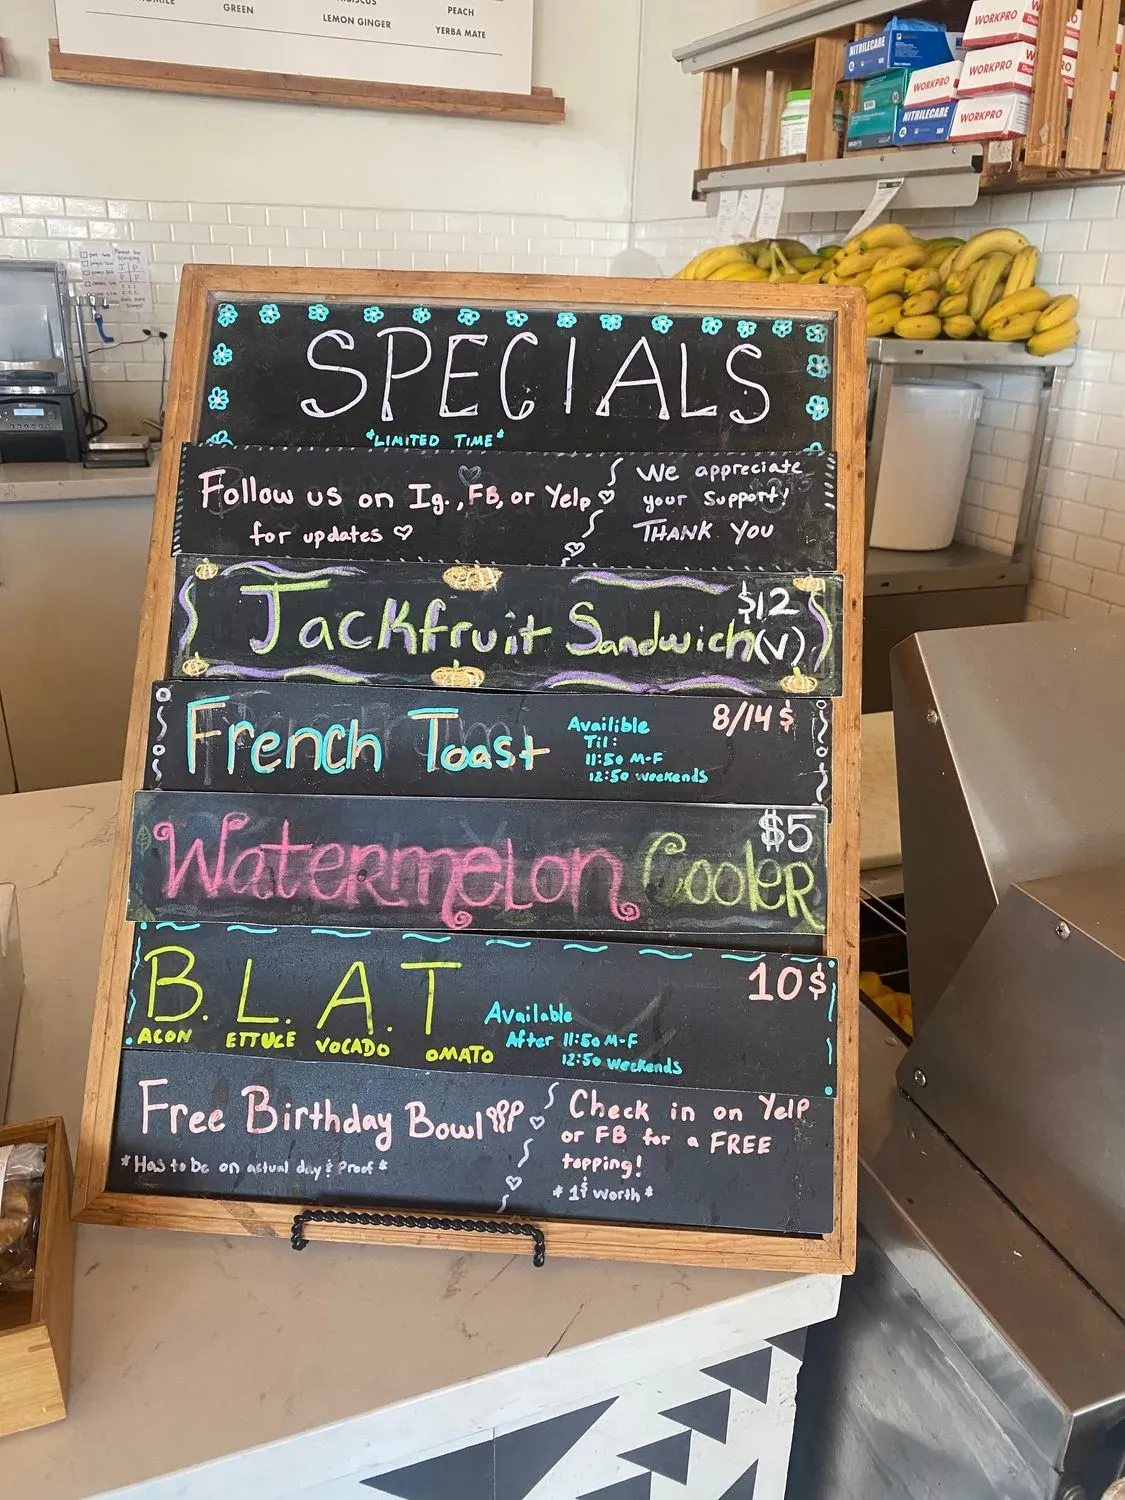 GREEN
LEMON GINGER
PEACH
YERBA MATE
NITRILECARE
WORKPRO
WORKPRO
WORKPRO
NITRILECARE
WORKPRO
SPECIALS
*LIMITED TIME*
Follow us on Ig., FB, or Yelp
for updates
We appreciate
your support!
THANK YOU
Jackfruit Sandwich (V)
$12
French Toast
Availible
Til:
11:50 M-F
12:50 weekends
8/14 $
Watermelon Cooler
$5
B. L. A. T
ACON ETTUCE VOCADO OMATO
Available
After 11:50 M-F
12:50 Weekends
10$
Free Birthday Bowl
*Has to be on actual day & Proof*
Check in on Yelp
or FB for a FREE
topping!
*1$ worth*